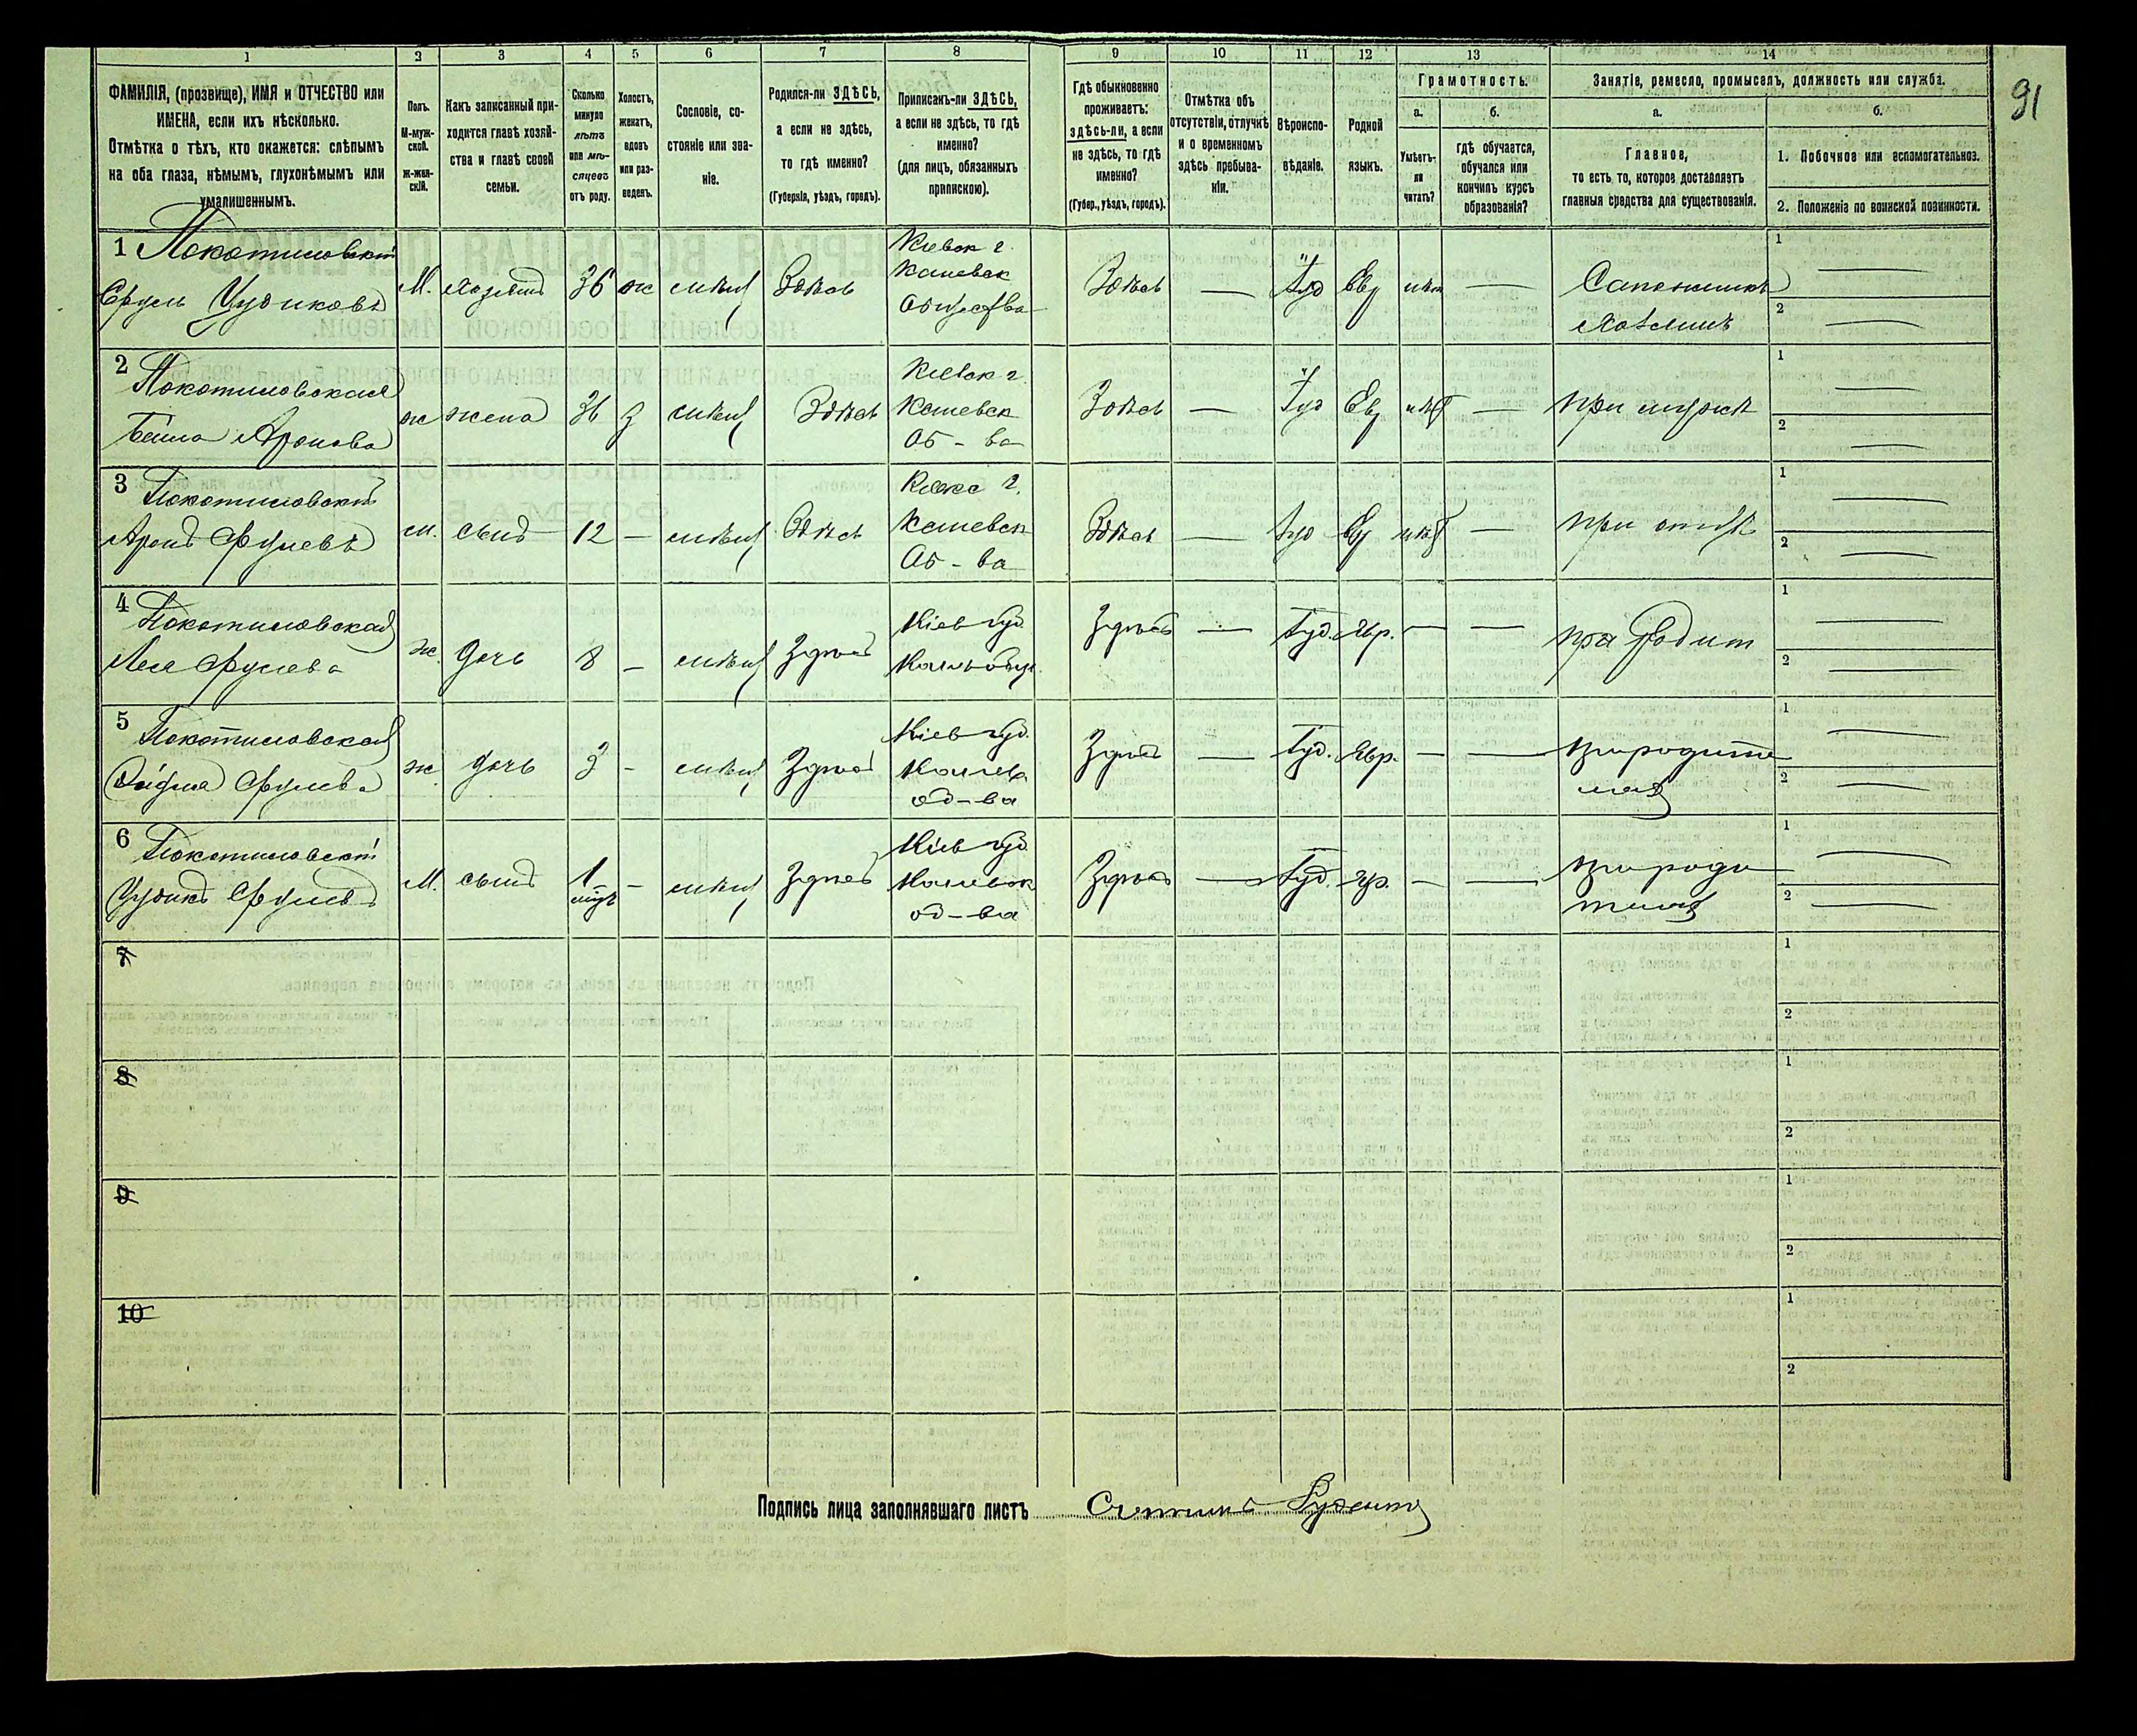 1 2 3 4 5 6 7 8 9 10 11 12 13 14
91
ФАМИЛІЯ, (прозвище), ИМЯ и ОТЧЕСТВО или
ИМЕНА, если ихъ нѣсколько.
Отмѣтка о тѣхъ, кто окажется: слѣпымъ
на оба глаза, нѣмымъ, глухонѣмымъ или
умалишеннымъ.
Полъ.
М-муж-
ской.
Ж-жен-
скій.
Какъ записанный при-
ходится главѣ хозяй-
ства и главѣ своей
семьи.
Сколько
минуло
лѣтъ
или мѣ-
сяцевъ
отъ роду.
Холостъ,
женатъ,
вдовъ
или раз-
веденъ.
Сословіе, со-
стояніе или зва-
ніе.
Родился-ли ЗДѢСЬ,
а если не здѣсь,
то гдѣ именно?
(Губернія, уѣздъ, городъ).
Приписанъ-ли ЗДѢСЬ,
а если не здѣсь, то гдѣ
именно?
(для лицъ, обязанныхъ
припискою).
Гдѣ обыкновенно
проживаетъ:
здѣсь-ли, а если
не здѣсь, то гдѣ
именно?
(Губер., уѣздъ, городъ).
Отмѣтка объ
отсутствіи, отлучкѣ
и о временномъ
здѣсь пребыва-
ніи.
Вѣроиспо-
вѣданіе.
Родной
языкъ.
Грамотность.
а.
Умѣетъ-
ли
читать?
б.
гдѣ обучается,
обучался или
кончилъ курсъ
образованія?
Занятіе, ремесло, промыселъ, должность или служба.
а.
Главное,
то есть то, которое доставляетъ
главныя средства для существованія.
б.
1. Побочное или вспомогательное.
2. Положеніе по воинской повинности.
1 Покотиловскій
Сруль Цудиковъ
М. хозяинъ 36 ж Здѣсь
Кіевск г.
Каневск
Общества
Здѣсь — Іуд Евр нѣт —
Сапожникъ
хозяинъ
1
2
2 Покотиловская
Бейла Аронова
ж жена 36 з Здѣсь
Кіевск г.
Каневск
Об-ва
Здѣсь — Іуд Евр нѣт —
при мужѣ
1
2
3 Покотиловскій
Аронъ Срулевъ
м. сынъ 12 — Здѣсь
Каневск
Об-ва
Здѣсь — Іуд Евр нѣт —
при отцѣ
1
2
4 Покотиловская
Лея Срулева
ж. дочь 8 — Здѣсь
Кіев губ.
Здѣсь — Іуд. Евр. — —
при Родит
1
2
5 Покотиловская
Срулева
ж. дочь 3 — Здѣсь
Кіев губ.
Канев
об-ва
Здѣсь — Іуд. Евр. — —
при родите
ляхъ
1
2
6 Покотиловскій
Цудикъ Срулевъ
М. сынъ 1 — Здѣсь
Кіев губ
Каневск
об-ва
Здѣсь — Іуд. — —
при роди
теляхъ
1
2
7
1
2
8
1
2
9
1
2
10
1
2
Подпись лица заполнявшаго листъ